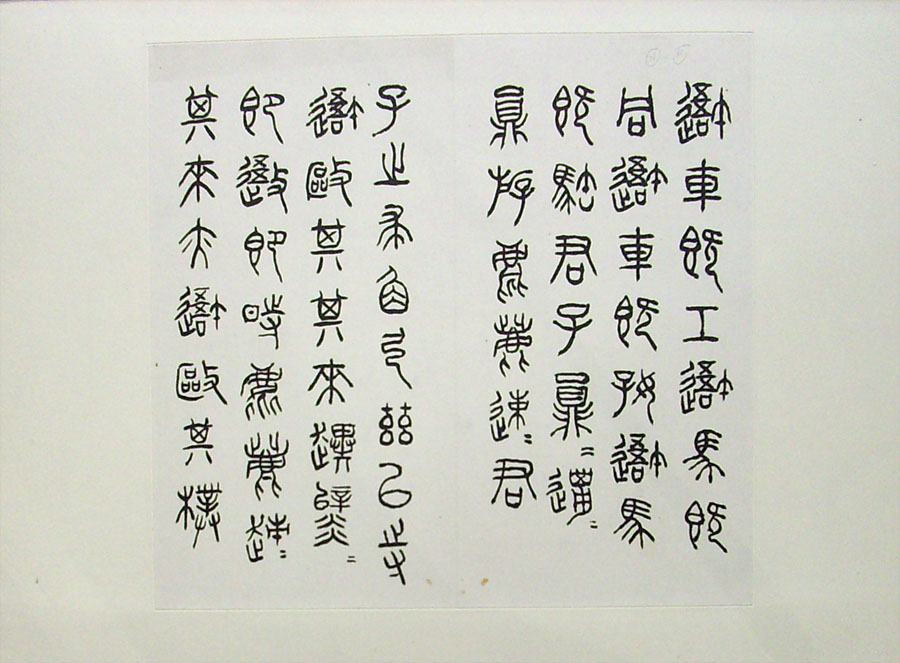 避車既工避馬既
同避車既好避馬
既君子員=邋=
員斿麀鹿速=君
子之求弓茲以寺
避敺其其來趩=
即即時麀鹿趚=
其來大避敺其樸